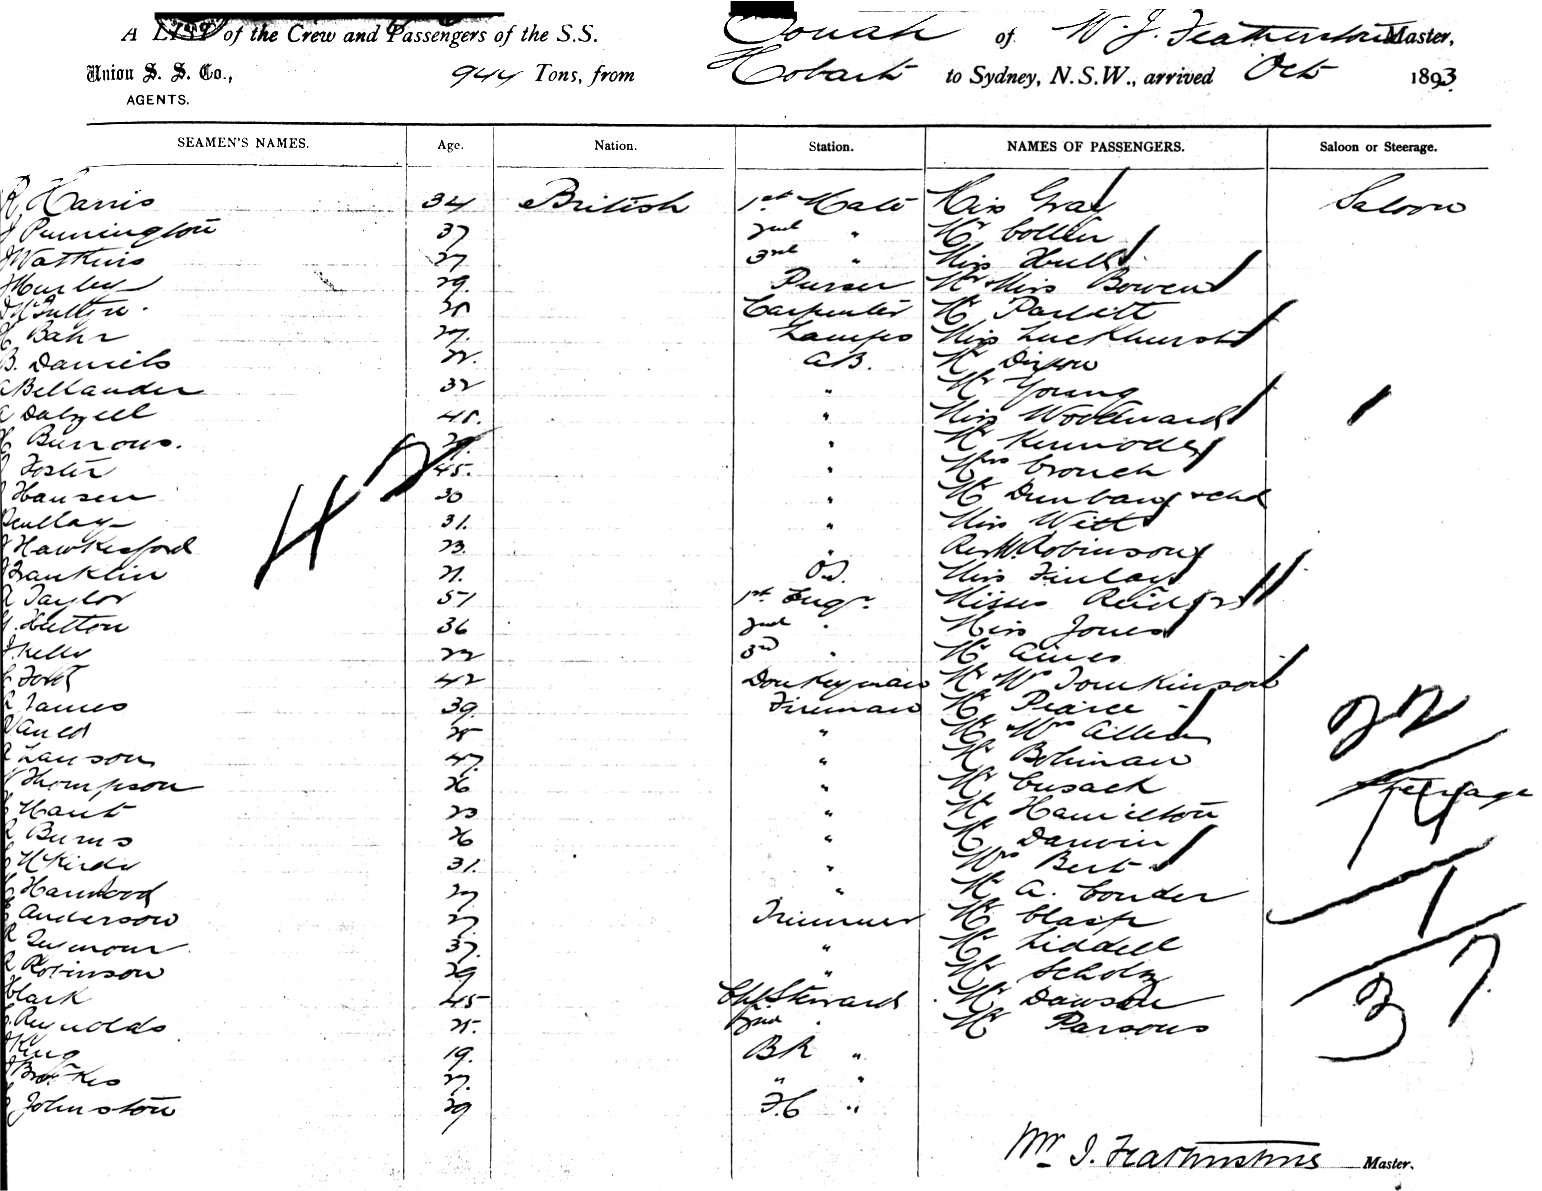 A LIST of the Crew and Passengers of the S.S. Oonah of W. J. Featherstone Master,
Union S. S. Co., 944 Tons, from Hobart to Sydney, N.S.W., arrived Oct 1893
AGENTS.
SEAMEN'S NAMES. Age. Nation. Station. NAMES OF PASSENGERS. Saloon or Steerage.
R Harris 34 British 1st Mate Miss Gray Saloon
J Pennington 37 2nd " Mr
J Watkins 27 3rd " Miss
Hurley 29 Purser Mr Miss Bowen
Carpenter Mr
Bahr 27 Lamps Miss Luckhurst
B. Daniels 22 AB. Mr Dixon
A Bellander 32 " Mr Young
A Dalzell 45 " Miss Woodward
Burrows. " Mr Kermode
Foster 45. " Mrs Crouch
Hansen 30 " Mr Dunbar & chd
31. " Miss Witt
Hawkesford 23. " Rev W. Robinson
Franklin 21. O.S. Miss Finlay
A Taylor 51 1st Engr. Misses Reid (2)
Hutton 36 2nd " Miss Jones
J Kelly 22 3rd " Mr
Ford 42 Donkeyman Mr W Tomkinson
A James 39 Fireman Mr Pearce
Auld 25 " Mr Mrs Allen
Lawson 47 " Mr Bohman
W Thompson 26 " Mr Cusack Steerage
Hant 23 " Mr Hamilton
R Burns 26 " Mr Darwin
McKirdy 31. " Mrs Bert
Harwood 27 " Mr A. Conder
Anderson 27 Trimmer Mr
R Seymour 37. " Mr Liddell
R Robinson 29 " Mr Scholz
Clark 45 Chf Steward Mr Dawson
Reynolds 25. 2nd " Mr Parsons
King 19. BR "
J Brookes 27. " "
Johnston 29 F.C "
42
22
14
1
37
Wm J. Featherstone Master.